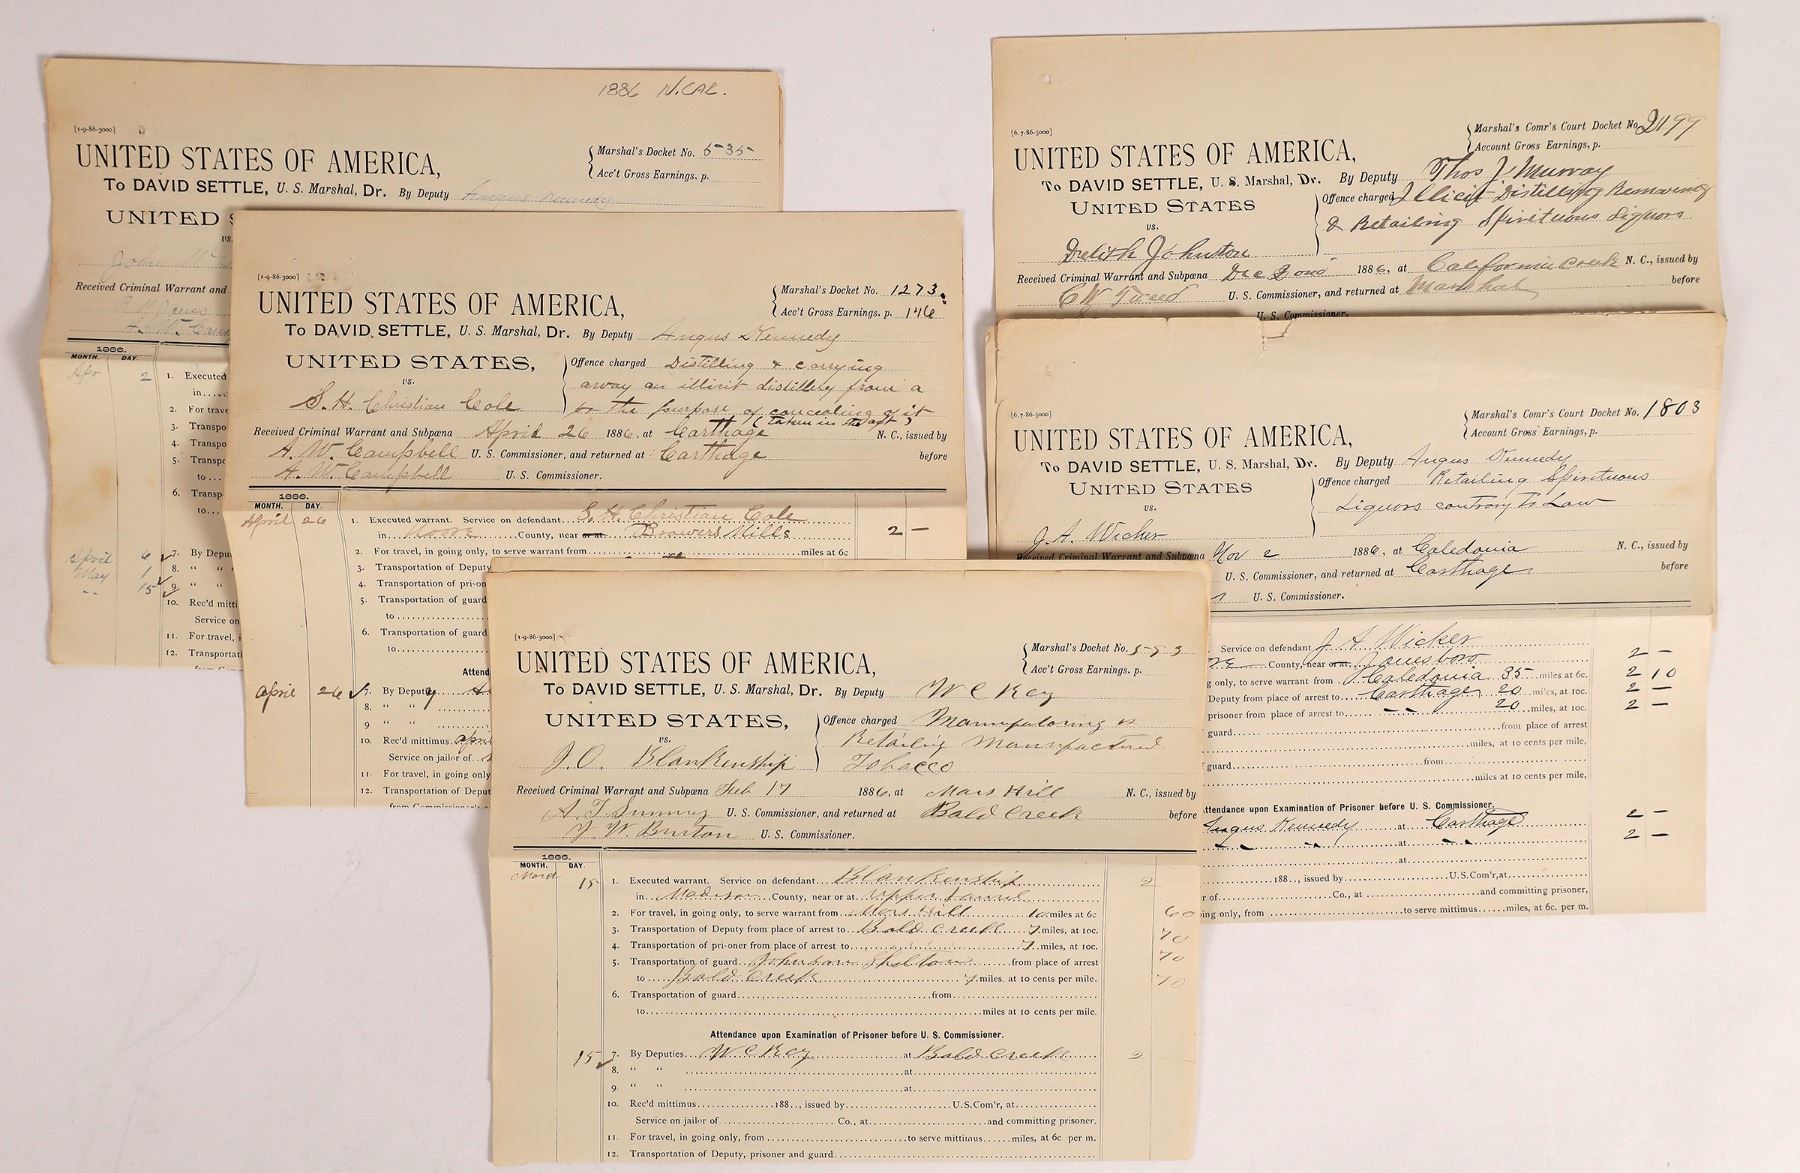 1886 N.CAR.
[1-9-86-3000]
UNITED STATES OF AMERICA,
Marshal's Docket No. 535
Acc't Gross Earnings, p.
To DAVID SETTLE, U. S. Marshal, Dr. By Deputy Angus Kennedy
UNITED S
vs.
John
Received Criminal Warrant and
1886.
MONTH. DAY.
Apr 2 1. Executed
in
2. For trave
3. Transpo
4. Transpo
5. Transpo
to
6. Transp
to
April 6 7. By Depu
May 1 8. " "
" 15 9. " "
10. Rec'd mitti
Service on
11. For travel, i
12. Transportati
[1-9-86-3000]
UNITED STATES OF AMERICA,
Marshal's Docket No. 1273.
Acc't Gross Earnings. p. 146
To DAVID SETTLE, U. S. Marshal, Dr. By Deputy Angus Kennedy
UNITED STATES,
Offence charged Distilling & carrying
vs.
away an illicit distillery from a
S. H. Christian Cole
the purpose of concealing of it
(taken in the act)
Received Criminal Warrant and Subpœna April 26 1886, at Carthage N. C., issued by
A. W. Campbell U. S. Commissioner, and returned at Carthage before
A. W. Campbell U. S. Commissioner.
1886.
MONTH. DAY.
April 26 1. Executed warrant. Service on defendant S. H. Christian Cole
in Moore County, near or at Browers Mills 2 –
2. For travel, in going only, to serve warrant from miles at 6c
3. Transportation of Deputy
4. Transportation of pri-on
5. Transportation of guard
to
6. Transportation of guard
to
Attend
April 26 7. By Deputy
8. " "
9. " "
10. Rec'd mittimus April
Service on jailor of
11. For travel, in going only
12. Transportation of Deput
from Commissioner's
[1-9-86-3000]
UNITED STATES OF AMERICA,
Marshal's Docket No. 553
Acc't Gross Earnings, p.
To DAVID SETTLE, U. S. Marshal, Dr. By Deputy W C Key
UNITED STATES,
Offence charged Manufatoring &
vs.
Retailing Manufactured
J. O. Blankenship
Tobacco
Received Criminal Warrant and Subpœna Feb 17 1886, at Mars Hill N. C., issued by
U. S. Commissioner, and returned at Bald Creek before
J. W. Burton U. S. Commissioner.
1886.
MONTH. DAY.
March 15 1. Executed warrant. Service on defendant Blankenship 2
in Madison County, near or at Upper Laurel
2. For travel, in going only, to serve warrant from Mars Hill 10 miles at 6c 60
3. Transportation of Deputy from place of arrest to Bald Creek 7 miles, at 10c. 70
4. Transportation of pri-oner from place of arrest to 7 miles, at 10c. 70
5. Transportation of guard Johnson Shelton from place of arrest
to Bald Creek 7 miles. at 10 cents per mile. 70
6. Transportation of guard from
to miles at 10 cents per mile.
Attendance upon Examination of Prisoner before U. S. Commissioner.
15 7. By Deputies W C Key at Bald Creek 2
8. " " at
9. " " at
10. Rec'd mittimus 188 , issued by U.S. Com'r, at
Service on jailor of Co., at and committing prisoner.
11. For travel, in going only, from to serve mittimus miles, at 6c per m.
12. Transportation of Deputy, prisoner and guard
[6.7.86-5000]
UNITED STATES OF AMERICA,
Marshal's Comr's Court Docket No. 2199
Account Gross Earnings, p.
To DAVID SETTLE, U. S. Marshal, Dr. By Deputy Thos J. Murray
UNITED STATES
Offence charged Illicit Distilling Removing
vs.
& Retailing Spirituous Liquors
Johnston
Received Criminal Warrant and Subpœna Dec 2ond 1886, at California Creek N. C., issued by
C W Tweed U. S. Commissioner, and returned at Marshal before
U. S. Commissioner.
[6.7.86-5000]
UNITED STATES OF AMERICA,
Marshal's Comr's Court Docket No. 1803
Account Gross Earnings, p.
To DAVID SETTLE, U. S. Marshal, Dr. By Deputy Angus Kennedy
UNITED STATES
Offence charged Retailing Spirituous
vs.
Liquors contrary to Law
J. A. Wicker
Received Criminal Warrant and Subpœna Nov 2 1886, at Caledonia N. C., issued by
U. S. Commissioner, and returned at Carthage before
U. S. Commissioner.
Service on defendant J. A. Wicker 2 –
County, near or at Jonesboro
g only, to serve warrant from Caledonia 35 miles at 6c. 2 10
Deputy from place of arrest to Carthage 20 miles, at 10c. 2 –
prisoner from place of arrest to " " 20 miles, at 10c. 2 –
guard from place of arrest
miles, at 10 cents per mile,
guard from
miles at 10 cents per mile,
ttendance upon Examination of Prisoner before U. S. Commissioner.
Angus Kennedy at Carthage 2 –
" " at " " 2 –
at
188 , issued by U.S.Com'r,at
r of Co., at and committing prisoner,
ing only, from to serve mittimus miles, at 6c. per m.